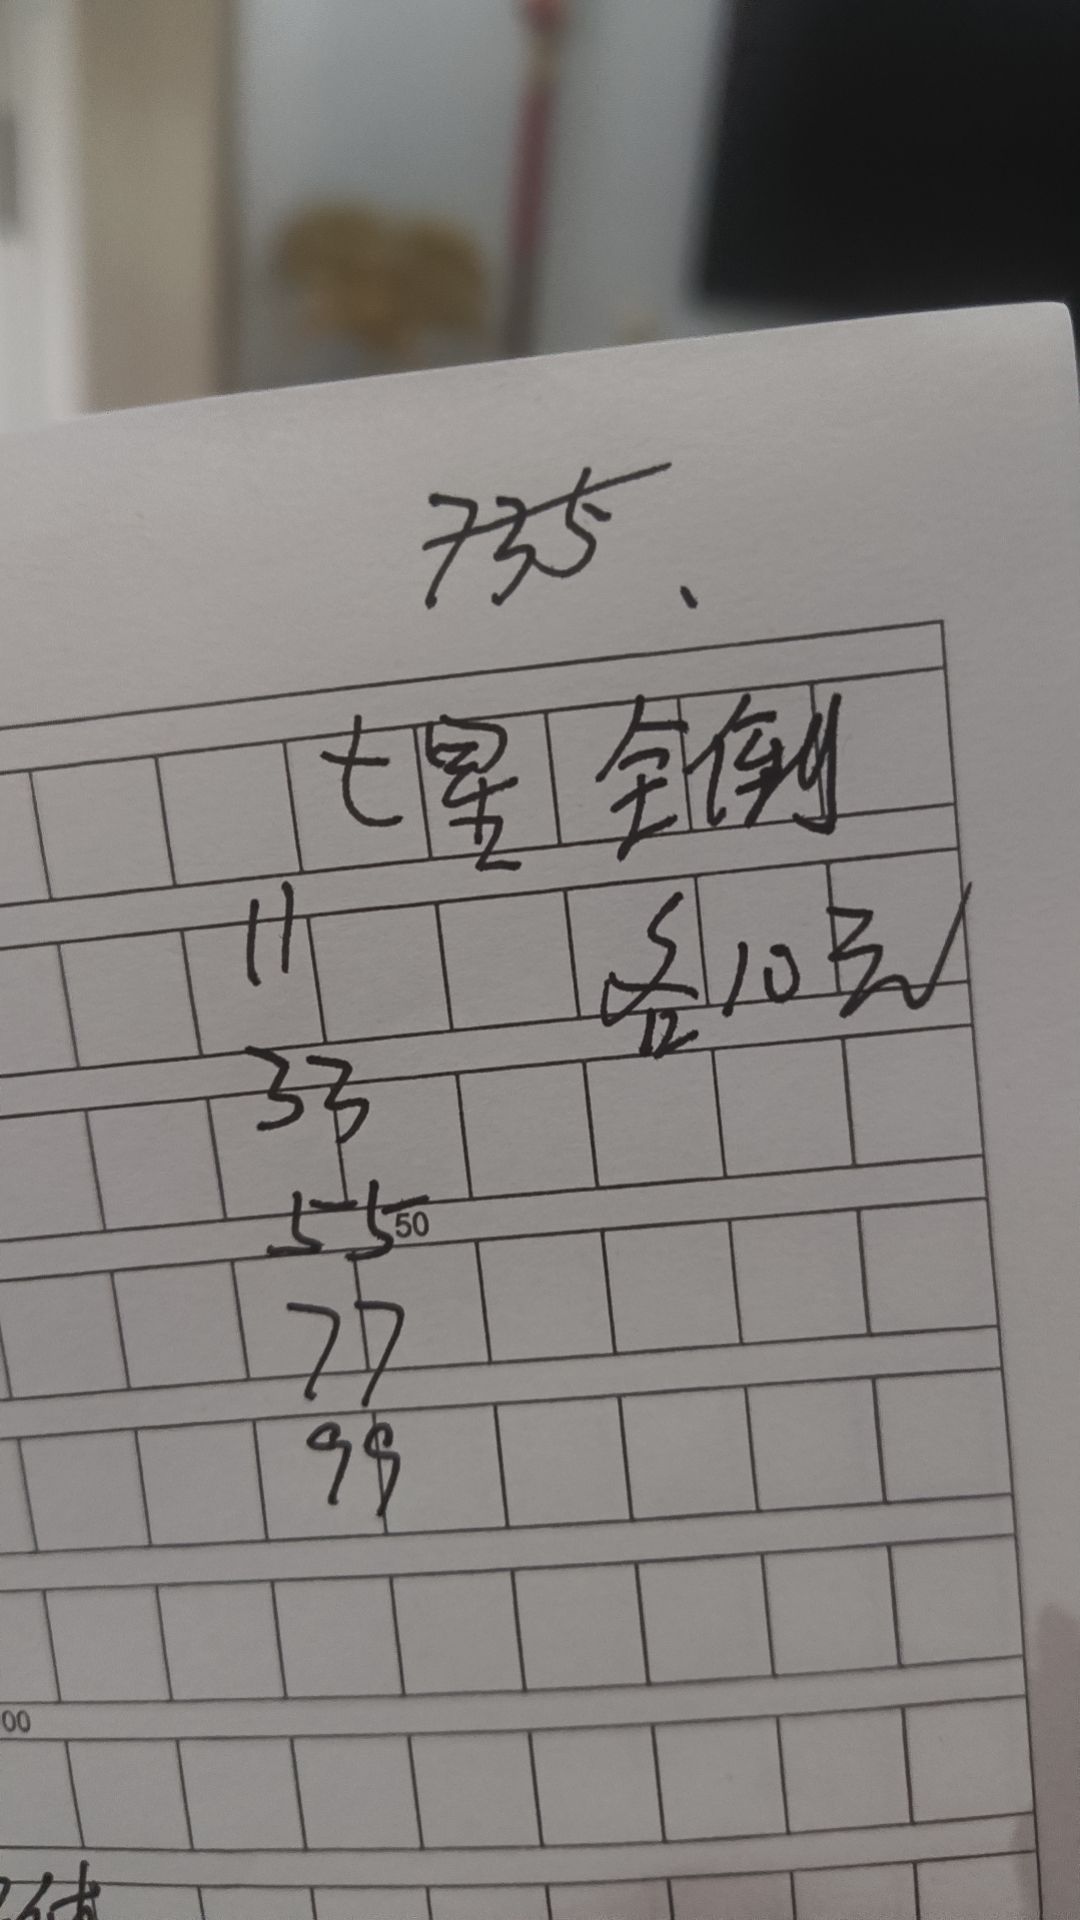 735、
七星 全倒
11 各10元
12
33
55
50
77
99
00